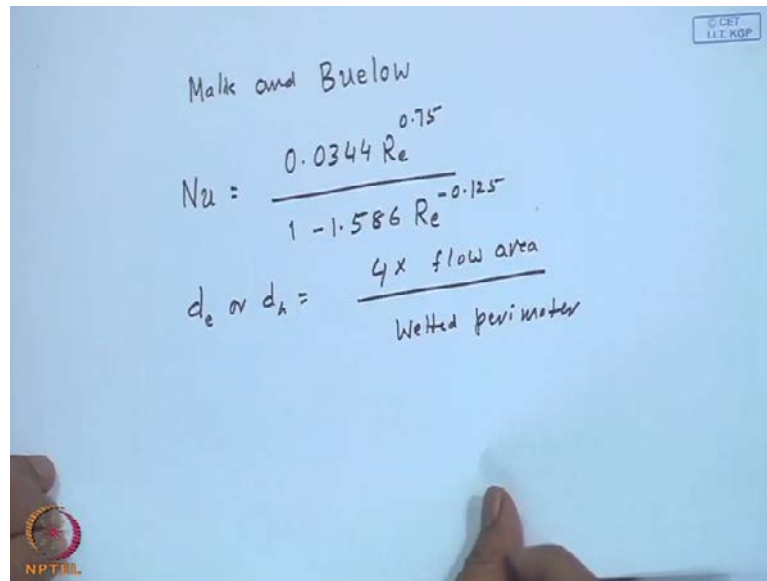 © CET
I.I.T. KGP
Malik and Buelow
Nu = 0.0344 Re^0.75 / 1 - 1.586 Re^-0.125
de or dh = 4x flow area / Wetted perimeter
NPTEL